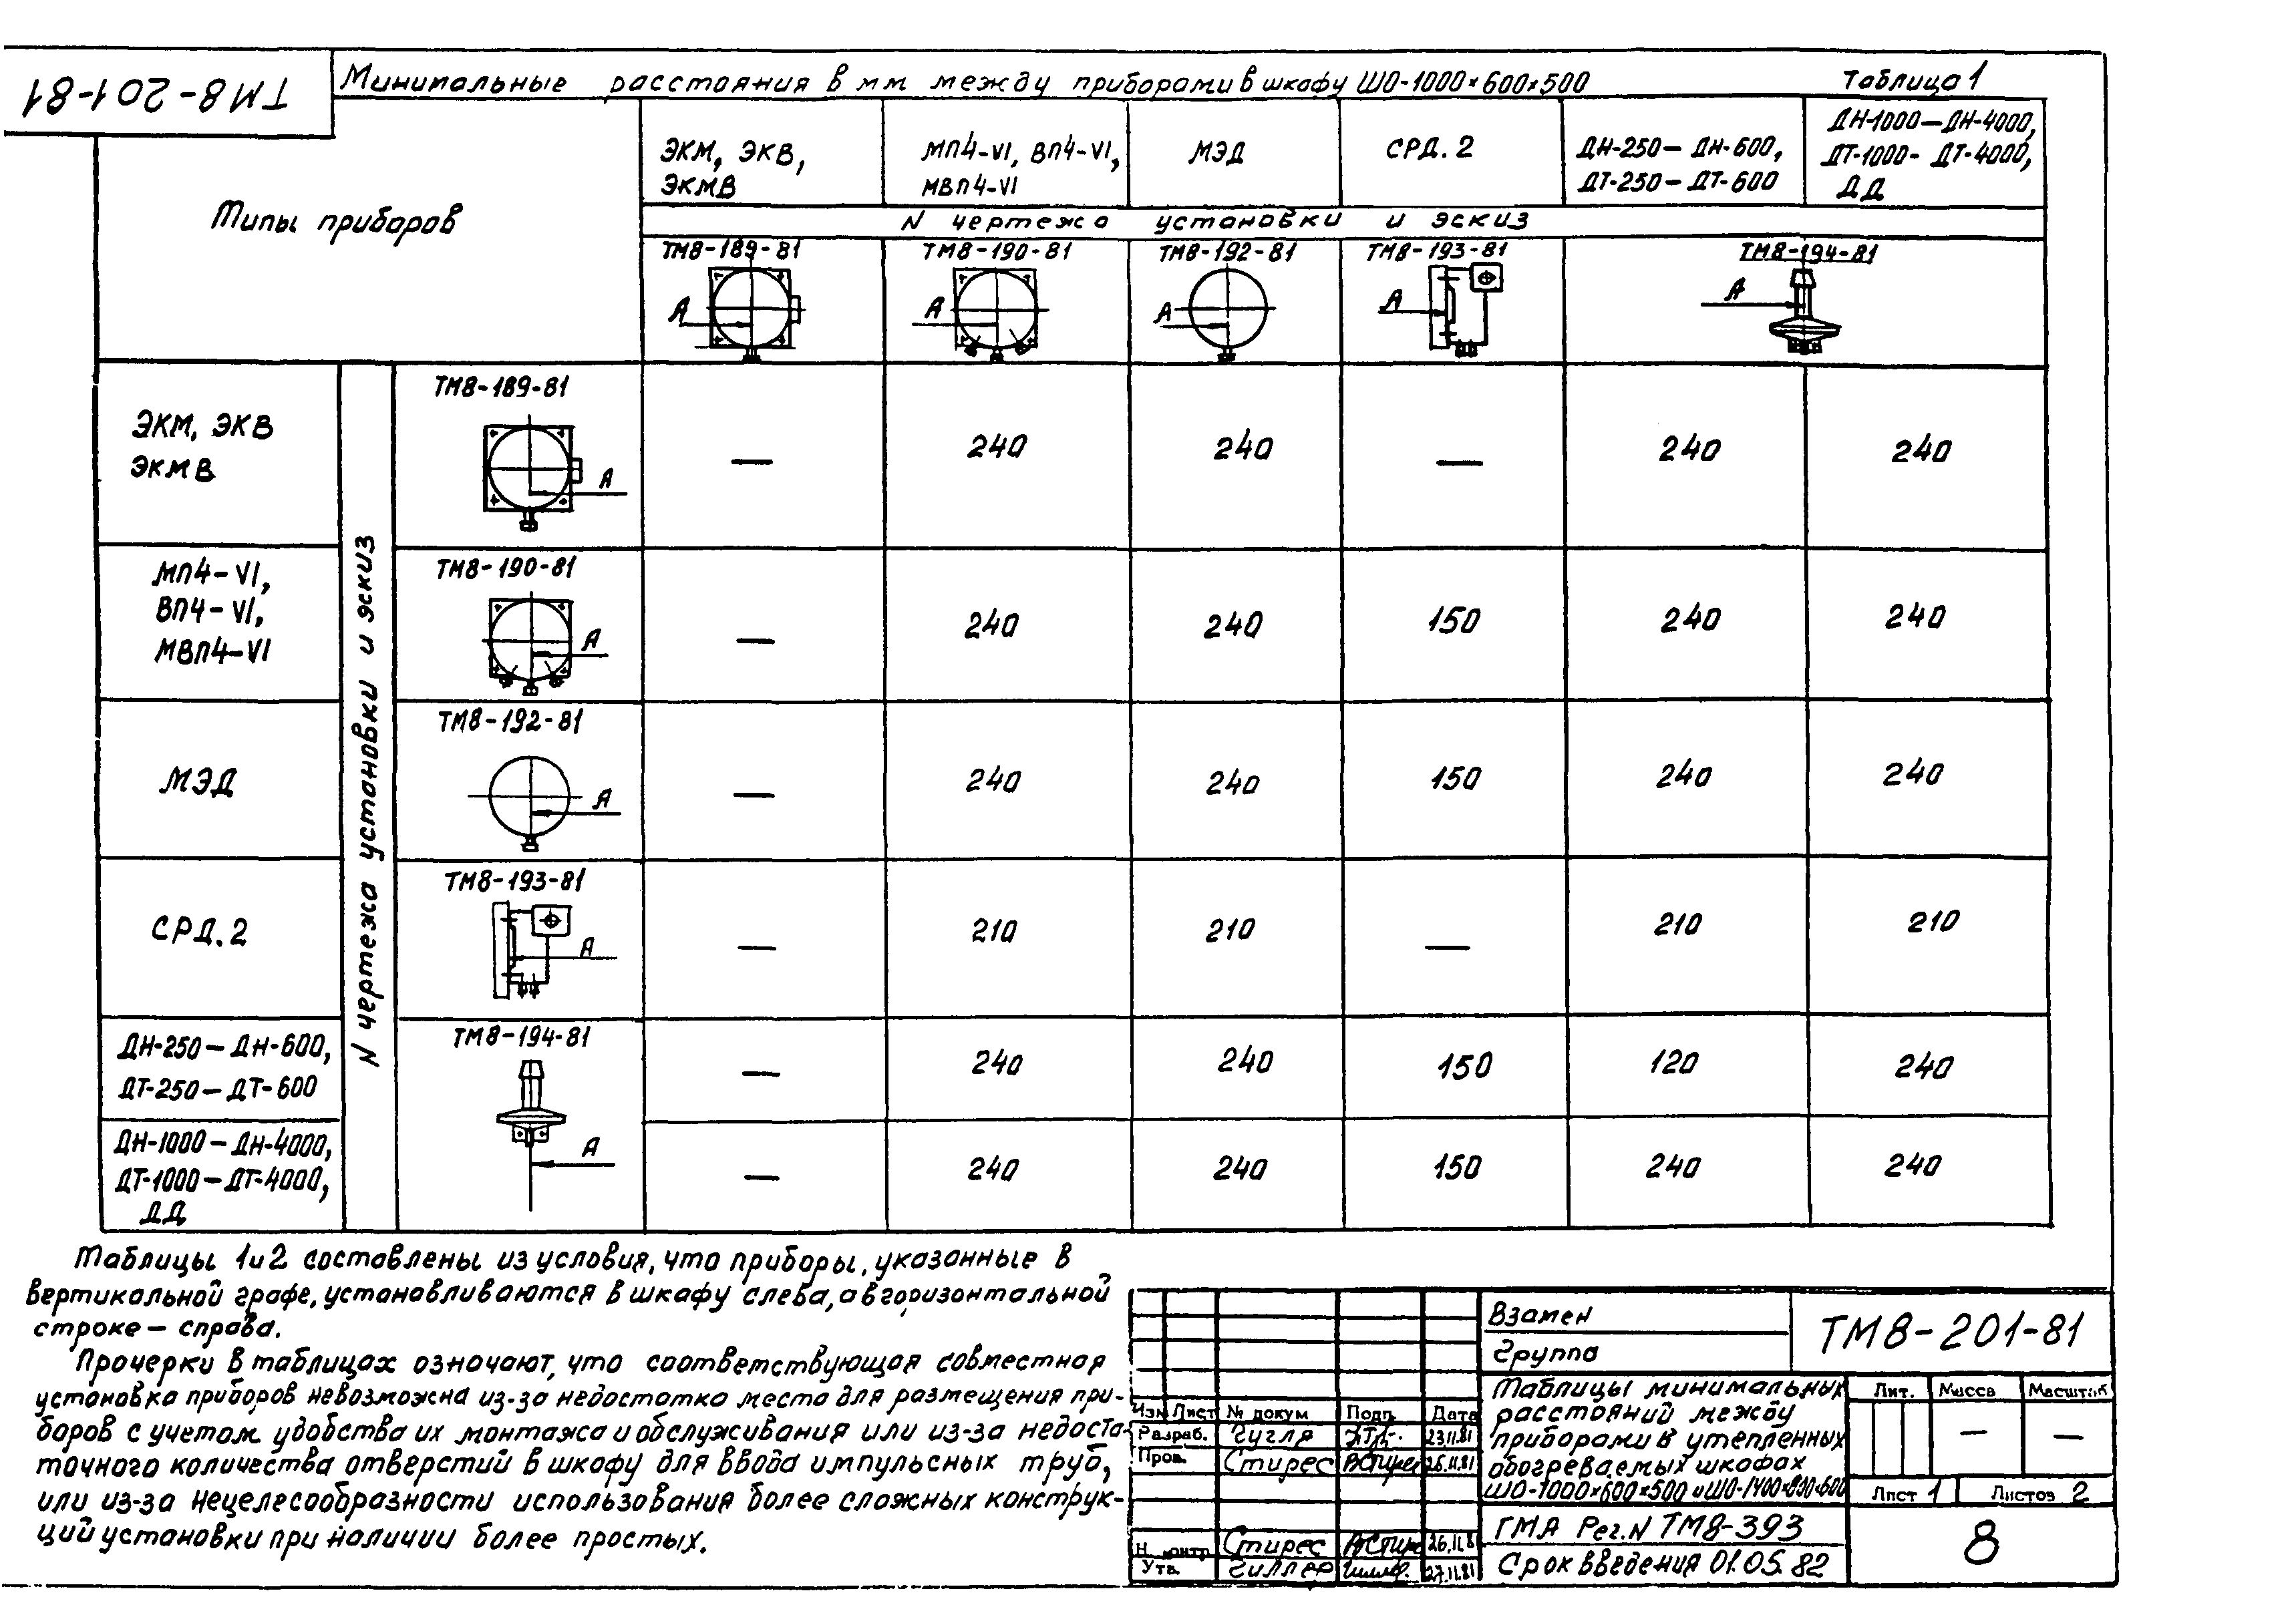 ТМ8-201-81
Минимальные расстояния в мм между приборами в шкафу ШО-1000×600×500
Таблица 1
Типы приборов
ЭКМ, ЭКВ,
ЭКМВ
МП4-VI, ВП4-VI,
МВП4-VI
МЭД
СРД.2
ДН-250— ДН-600,
ДТ-250— ДТ-600
ДН-1000—ДН-4000,
ДТ-1000- ДТ-4000,
ДД
N чертежа установки и эскиз
ТМ8-189-81 ТМ8-190-81 ТМ8-192-81 ТМ8-193-81 ТМ8-194-81
А А А А А
N чертежа установки и эскиз
ЭКМ, ЭКВ
ЭКМВ
ТМ8-189-81
А
— 240 240 — 240 240
МП4-VI,
ВП4-VI,
МВП4-VI
ТМ8-190-81
А
— 240 240 150 240 240
МЭД
ТМ8-192-81
А
— 240 240 150 240 240
СРД.2
ТМ8-193-81
А
— 210 210 — 210 210
ДН-250— ДН-600,
ДТ-250— ДТ-600
ТМ8-194-81
— 240 240 150 120 240
ДН-1000— ДН-4000,
ДТ-1000—ДТ-4000,
ДД
А
— 240 240 150 240 240
Таблицы 1 и 2 составлены из условия, что приборы, указанные в
вертикальной графе, устанавливаются в шкафу слева, а в горизонтальной
строке — справа.
Прочерки в таблицах означают, что соответствующая совместная
установка приборов невозможна из-за недостатка места для размещения при-
боров с учетом удобства их монтажа и обслуживания или из-за недоста-
точного количества отверстий в шкафу для ввода импульсных труб,
или из-за нецелесообразности использования более сложных конструк-
ций установки при наличии более простых.
Взамен
Группа
ТМ8-201-81
Таблицы минимальных
расстояний между
приборами в утепленных
обогреваемых шкафах
ШО-1000×600×500 и ШО-1400×800×600
Лит. Масса Масштаб
— —
Лист 1 Листов 2
Изм Лист № докум Подп. Дата
Разраб. Гугля 23.11.81
Пров. Стирес 26.11.81
Н. контр. Стирес 26.11.8
Утв. Гиллер 27.11.81
ГМА Рег.N ТМ8-393
Срок введения 01.05.82
8